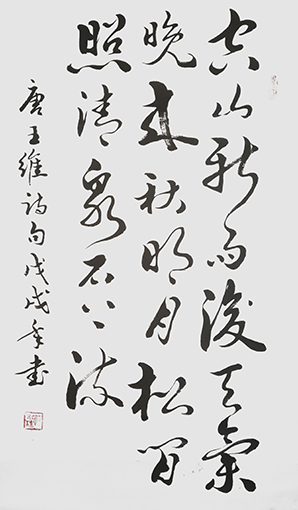 空山新雨後天氣
晚來秋明月松間
照清泉石上流
唐王維詩句戊戌年書